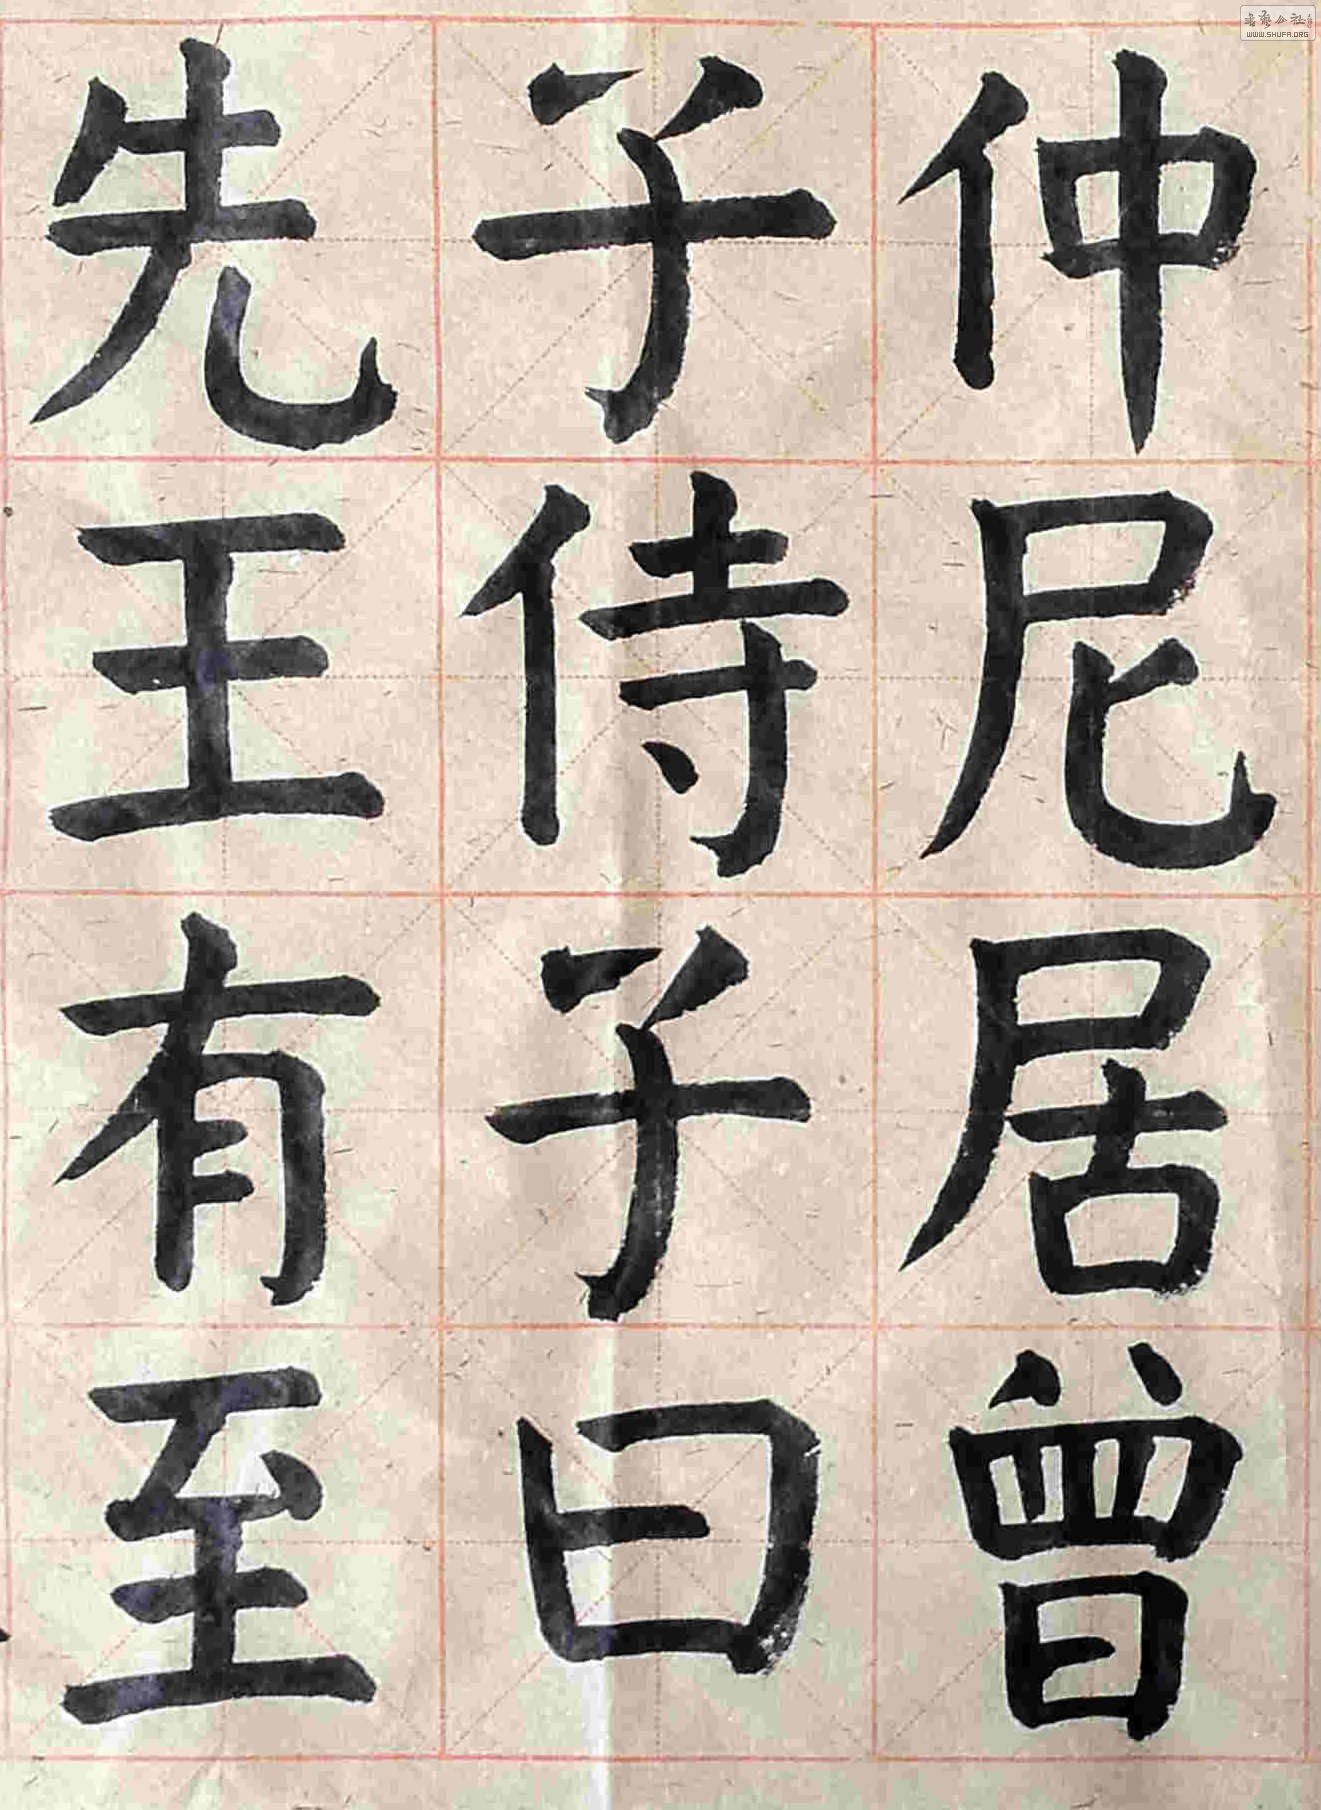 仲尼居曾
子侍子曰
先王有至
WWW.SHUFA.ORG